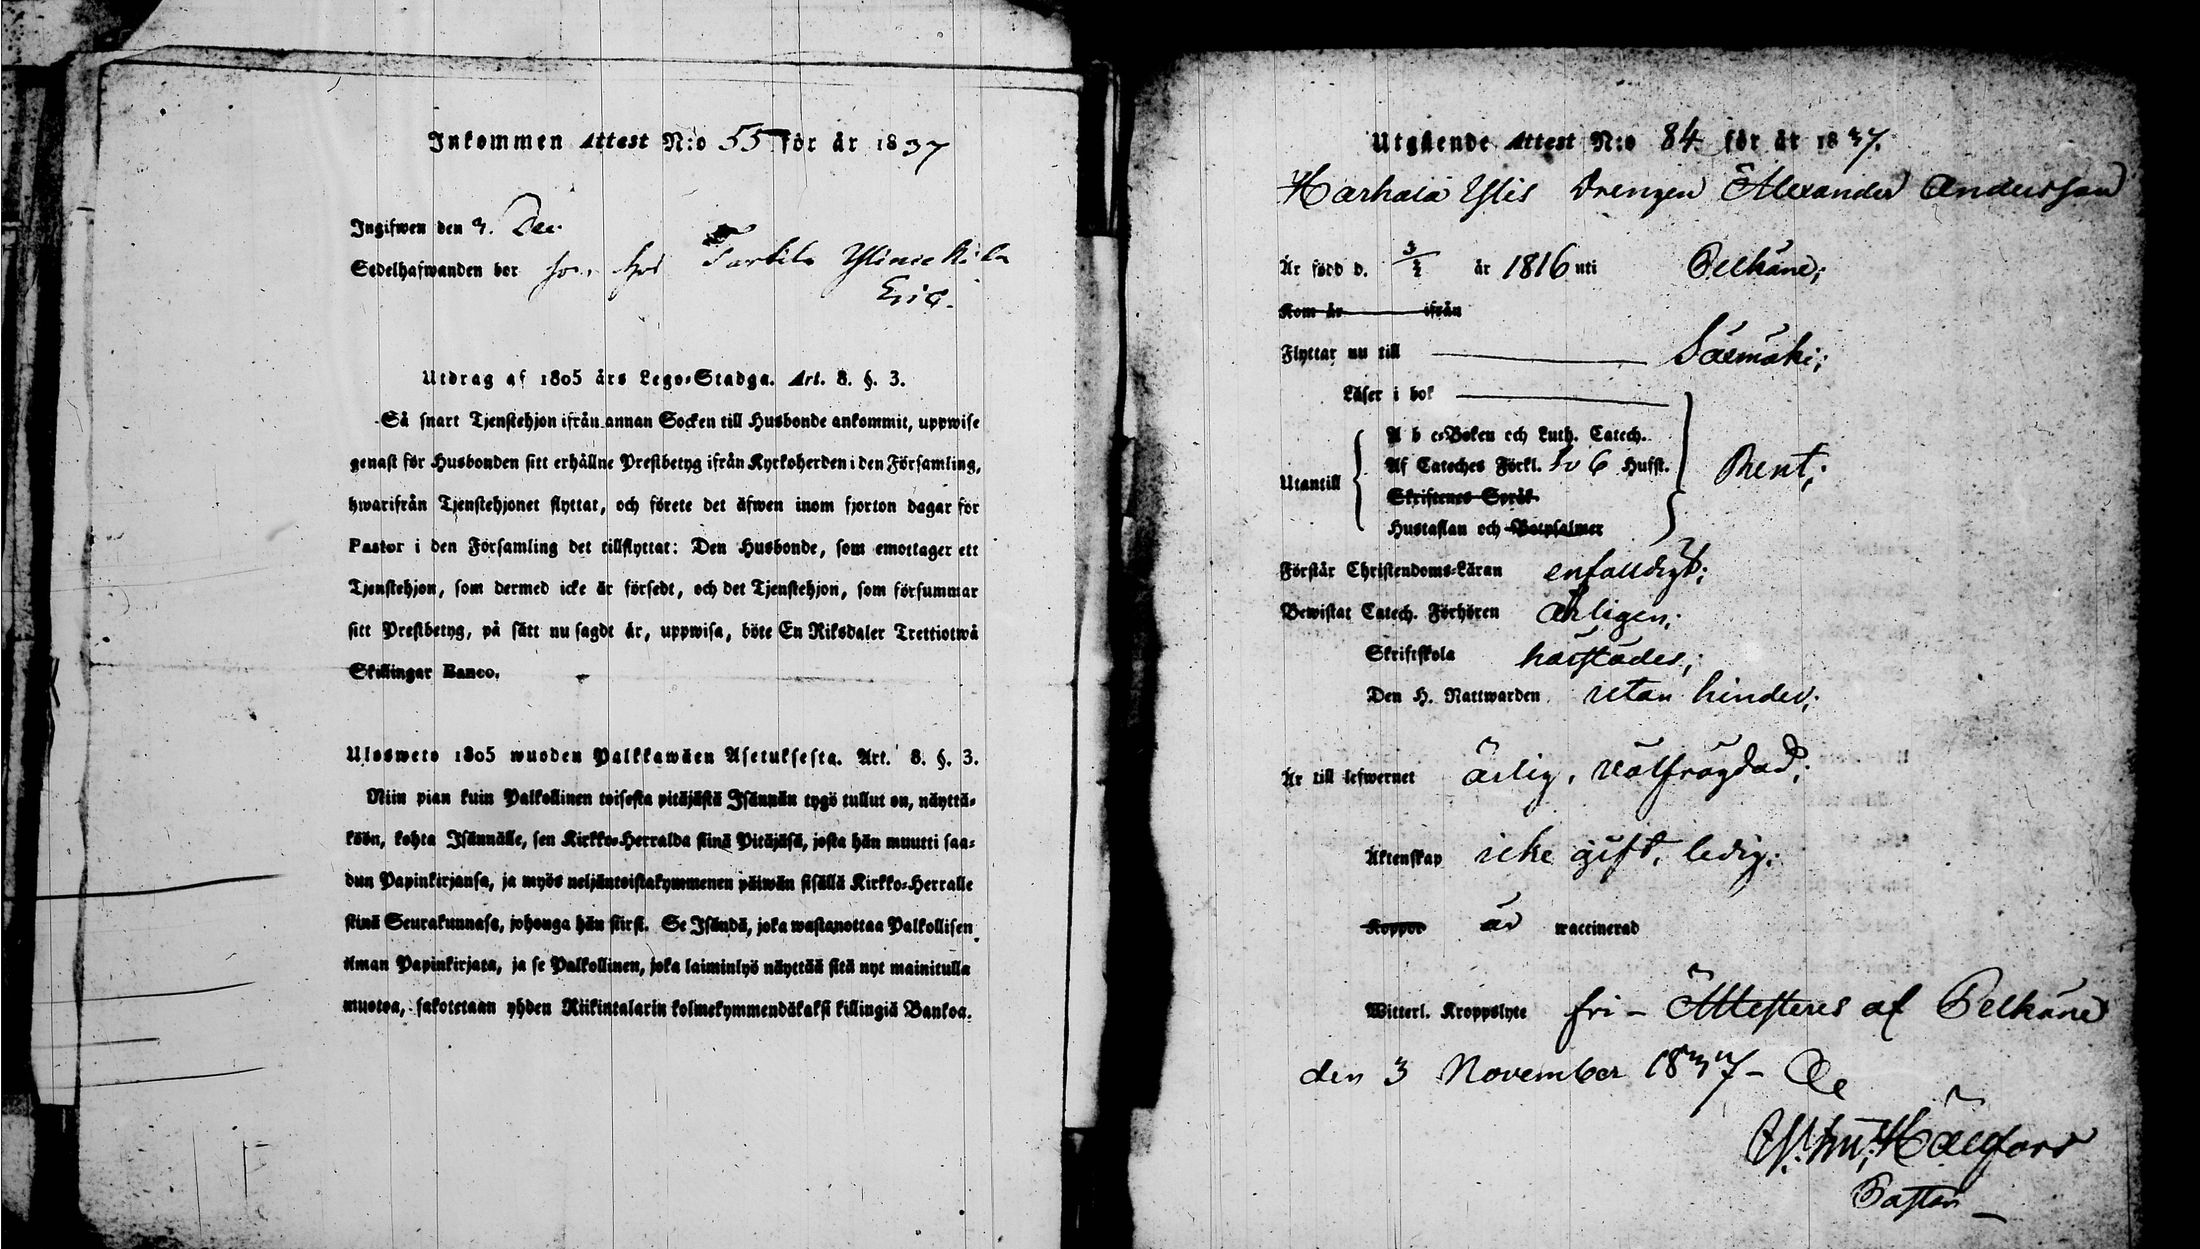 Inkommen Attest N:o 55 för år 1837
Ingifwen den 3. Dec.
Sedelhafwanden bor hos
Eric.
Utdrag af 1805 års Lego-Stadga. Art. 8. §. 3.
Så snart Tjenstehjon ifrån annan Socken till Husbonde ankommit, uppwise
genast för Husbonden sitt erhållne Prestbetyg ifrån Kyrkoherden i den Församling,
hwarifrån Tjenstehjonet flyttat, och förete det äfwen inom fjorton dagar för
Pastor i den Församling det tillflyttat: Den Husbonde, som emottager ett
Tjenstehjon, som dermed icke är försedt, och det Tjenstehjon, som försummar
sitt Prestbetyg, på sätt nu sagdt är, uppwisa, böte En Riksdaler Trettiotwå
Skillingar Banco.
Ulosweto 1805 wuoden Palkkawäen Asetuksesta. Art. 8. §. 3.
Niin pian kuin Palkollinen toisesta pitäjästä Isännän tygö tullut on, näyttä-
köön, kohta Isännälle, sen Kirkko-Herralda siinä Pitäjäsä, josta hän muutti saa-
dun Papinkirjansa, ja myös neljäntoistakymmenen päiwän sisällä Kirkko-Herralle
siinä Seurakunnasa, johonga hän siirsi. Se Isändä, joka wastanottaa Palkollisen
ilman Papinkirjata, ja se Palkollinen, joka laiminlyö näyttää sitä nyt mainitulla
muotoa, sakotetaan yhden Riikintalarin kolmekymmendäkaksi killingiä Bankoa.
Utgående Attest N:o 84 för år 1837.
Harhala Ylis Drengen Alexander Andersson
Är född d. 3/2 år 1816 uti Pelkäne;
Kom år ifrån
Flyttar nu till Säxmäki;
Läser i bok
A b c-Boken och Luth. Catech.
Utantill Af Cateches Förkl. 6 Hufst. Rent;
Skriftenes Språk
Hustaflan och Botpsalmer
Förstår Christendoms-Läran enfaldigt;
Bewistat Catech. Förhören Årligen;
Skriftskola härstädes;
Den H. Nattwarden utan hinder;
Är till lefwernet ärlig, välfrägdad;
Äktenskap icke gift, ledig;
Koppor är waccinerad
Witterl. Kroppslyte fri – Attesteres af Pelkäne
den 3 November 1837 –
Pastor –